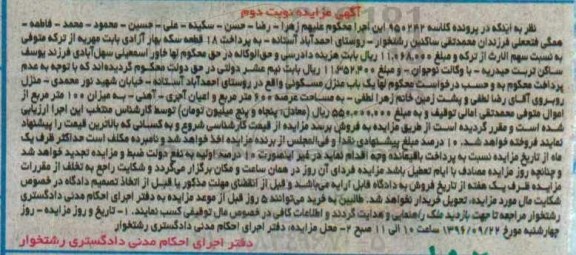 آگهی مزایده نوبت دوم
نظر به اینکه در پرونده کلاسه ۹۵۰۲۴۲ این اجرا محکوم علیهم زهرا - رضا - حسن - سکینه - علی - حسین - محمود - محمد - فاطمه -
همگی فتحعلی فرزندان محمدتقی ساکنین رشتخوار - روستای احمدآباد آستانه - به پرداخت ۱۸ قطعه سکه بهار آزادی بابت مهریه از ترکه متوفی
به نسبت سهم الارث از ترکه و مبلغ ۱۱،۰۶۸،۰۰۰ ریال بابت هزینه دادرسی و حق‌الوکاله در حق محکوم لها خاور اسمعیلی سهل‌آبادی فرزند یوسف
ساکن تربت حیدریه - با وکالت نوجوان - و مبلغ ۱۱،۳۵۲،۴۰۰ ریال بابت نیم عشر دولتی در حق دولت محکوم گردیده‌اند که با توجه به عدم
پرداخت محکوم به و حسب درخواست محکوم لها یک باب منزل مسکونی واقع در روستای احمدآباد آستانه - خیابان شهید نور محمدی - منزل
روبروی آقای رضا لطفی و پشت زمین خانم زهرا لطفی - به مساحت عرصه ۶۰۰ متر مربع و اعیان آجری - آهنی - به میزان ۱۰۰ متر مربع از
اموال متوفی محمدتقی امانی توقیف و به مبلغ ۵۵۰،۰۰۰،۰۰۰ ریال (معادل: پنجاه و پنج میلیون تومان) توسط کارشناس منتخب این اجرا ارزیابی
شده است و مقرر گردیده است از طریق مزایده به فروش برسد مزایده از قیمت کارشناسی شروع و به کسانی که بالاترین قیمت را پیشنهاد
نمایند فروخته خواهد شد. ۱۰ درصد مبلغ پیشنهادی نقدا و فی‌المجلس از برنده مزایده اخذ خواهد شد و نامبرده مکلف است حداکثر ظرف یک
ماه از تاریخ مزایده نسبت به پرداخت باقیمانده وجه اقدام نماید در غیر اینصورت ۱۰ درصد اولیه به نفع دولت ضبط و مزایده تجدید خواهد شد
و چنانچه روز مزایده مصادف با ایام تعطیل باشد مزایده فردای آن روز در همان ساعت و مکان برگزار می‌گردد و شکایت راجع به تخلف از مقررات
مزایده ظرف یک هفته از تاریخ فروش به دادگاه قابل ارایه می‌باشد و قبل از انقضای مهلت مذکور یا قبل از اتخاذ تصمیم دادگاه در خصوص
شکایت مال مورد مزایده، تحویل خریدار نخواهد شد. طالبین به خرید می‌توانند ۵ روز قبل از موعد مزایده به دفتر اجرای احکام مدنی دادگستری
رشتخوار مراجعه تا جهت بازدید ملک راهنمایی و هدایت گردند و اطلاعات کافی در خصوص مال توقیفی کسب نمایند. ۱- تاریخ و روز مزایده - روز
چهارشنبه مورخ ۱۳۹۶/۰۹/۲۲ ساعت ۱۰ الی ۱۱ صبح ۲- محل مزایده: دفتر اجرای احکام مدنی دادگستری رشتخوار
دفتر اجرای احکام مدنی دادگستری رشتخوار